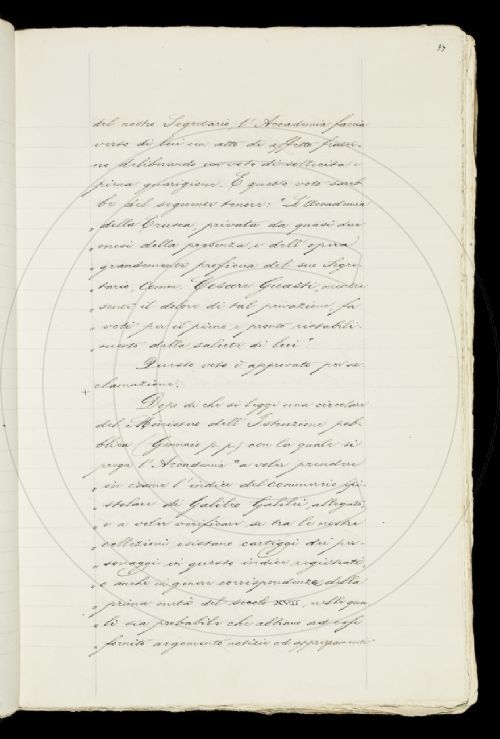 37
del nostro Segretario, l'Accademia faccia
verso di lui un atto di affetto frater-
no deliberando un voto di sollecita e
piena guarigione. E questo voto sareb-
be del seguente tenore: "L'Accademia
" della Crusca, privata da quasi due
" mesi della presenza e dell'opera
" grandemente proficua del suo Segre-
" tario, Comm. Cesare Guasti, mentre
" sente il dolore di tal privazione fa
" voti per il pieno e pronto ristabili-
" mento della salute di lui."
Questo voto è approvato per ac-
clamazione.
Dopo di che si leggi una circolare
del Ministero dell'Istruzione pub-
blica (Gennaio p. p.) con la quale si
prega l'Accademia "a voler prendere
" in esame l'indice del commercio epi-
" stolare di Galileo Galilei, allegato,
" e a voler verificare se tra le nostre
" collezioni esistano carteggi dei per-
" sonaggi in questo indice registrati,
" o anche in genere corrispondenze della
" prima metà del secolo XVII, nelle qua-
" li sia probabile che abbiano ad esser
" fornito argomento notizie ed apprezzamenti